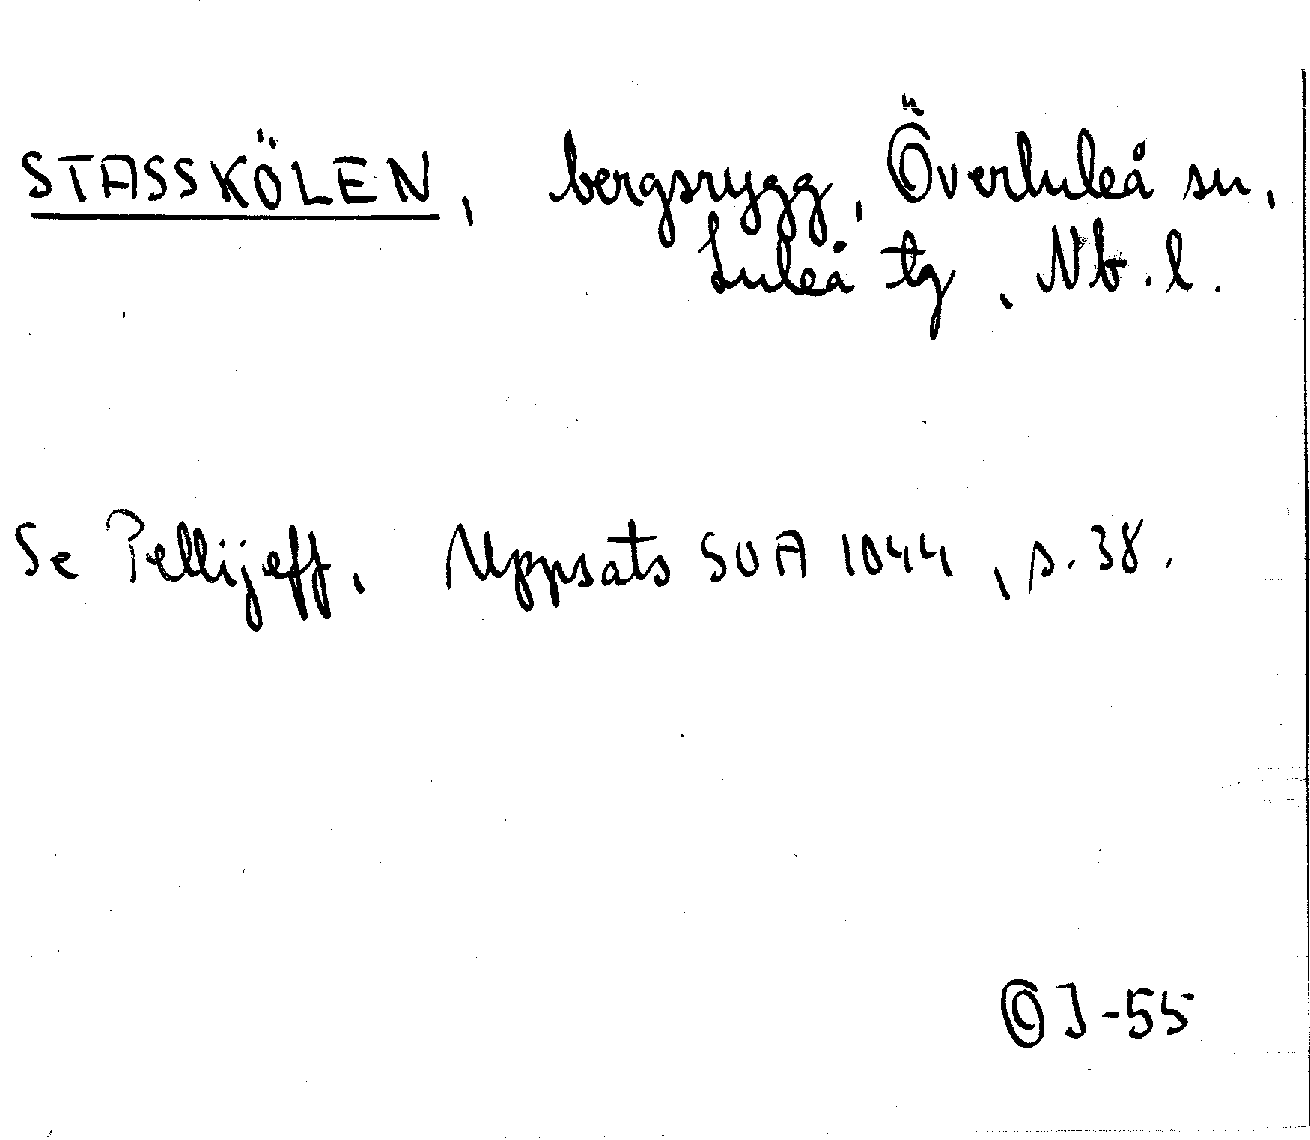 STASSKÖLEN, bergsrygg, Överluleå sn,
Luleå tg, Nb.l.
Se Pellijeff, Uppsats SOA 1044, s. 38.
OJ-55